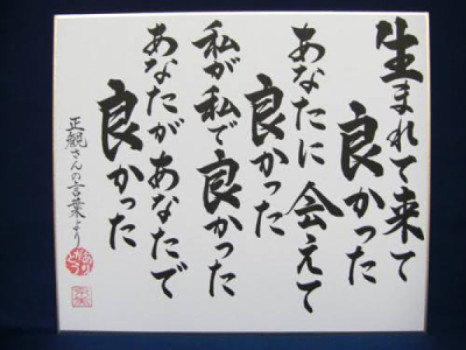 生まれて来て
良かった
あなたに会えて
良かった
私が私で良かった
あなたがあなたで
良かった
正観さんの言葉より